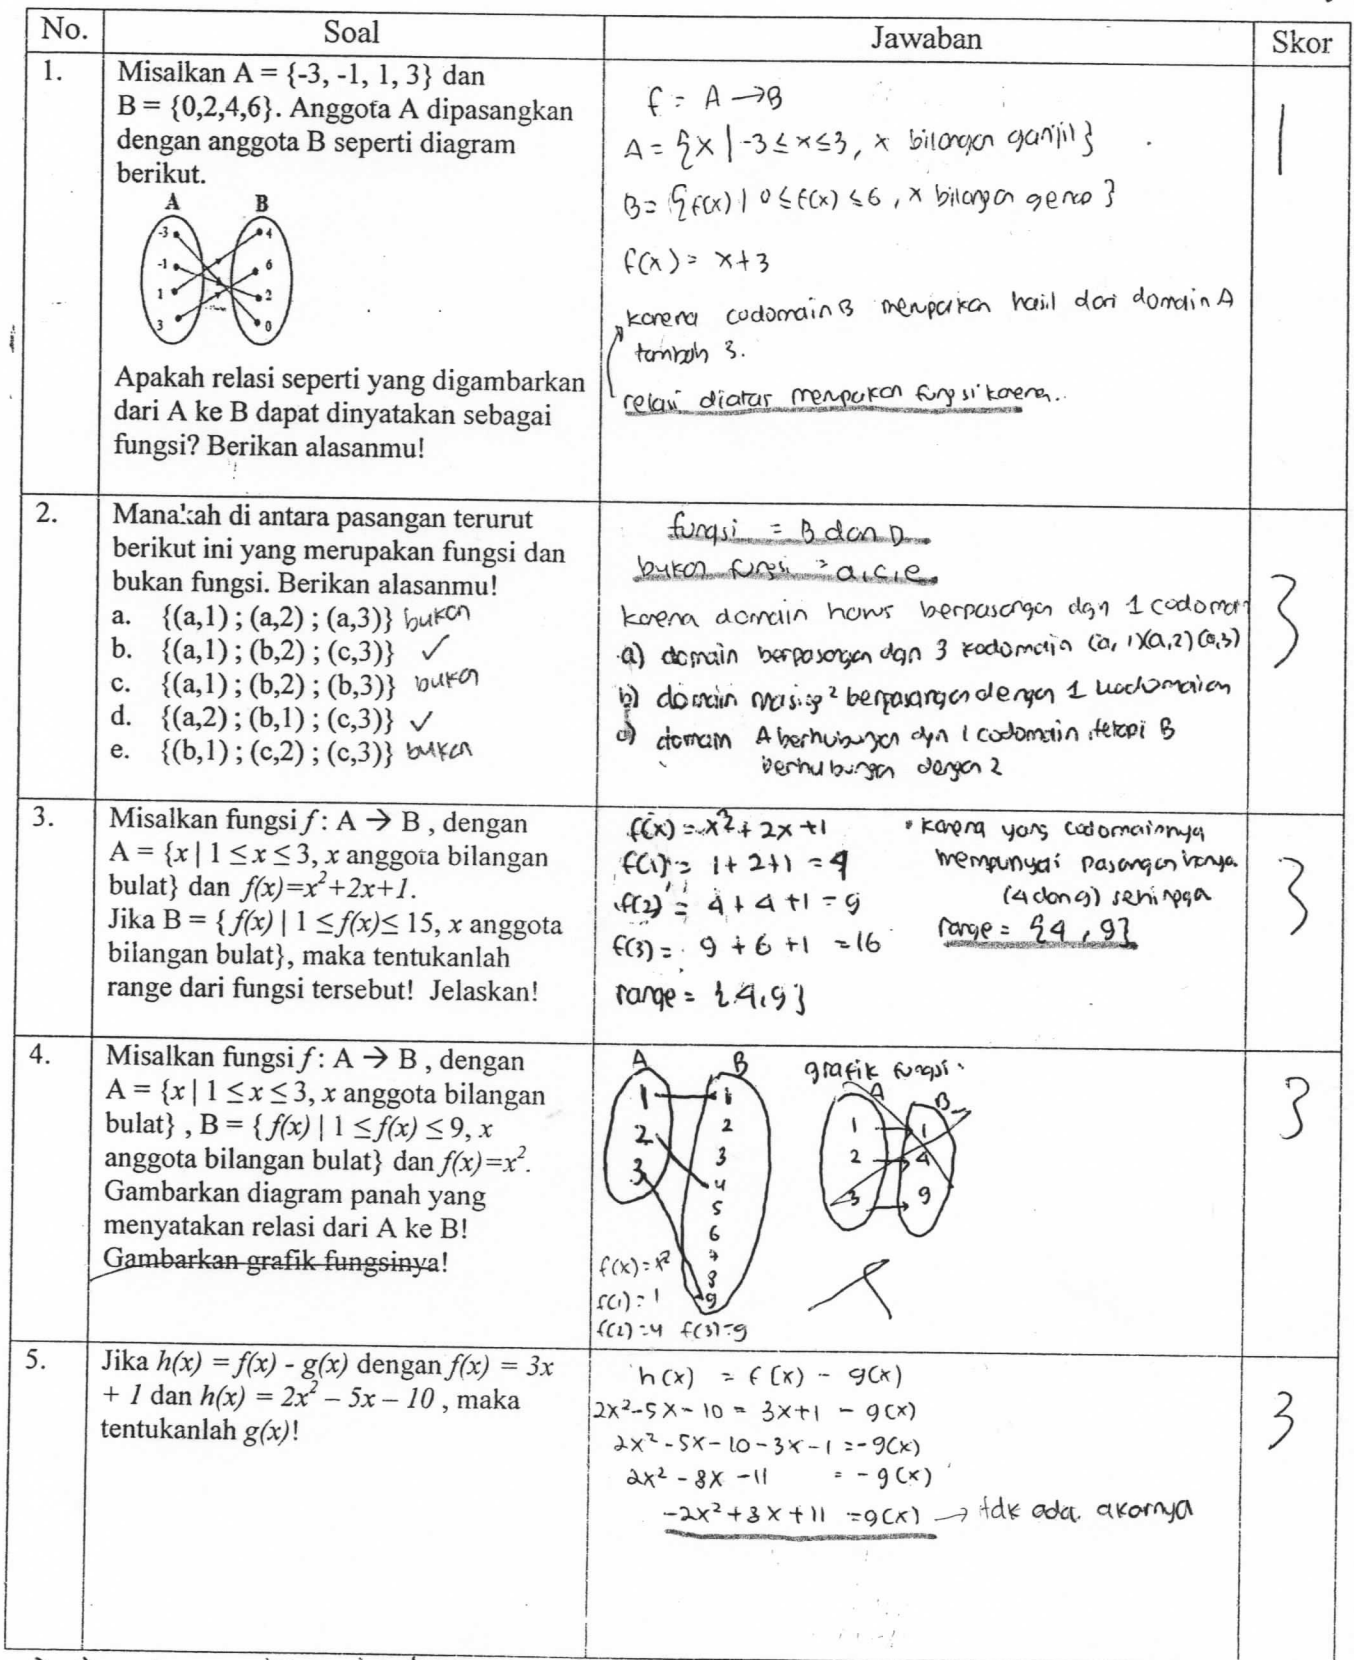 No. Soal Jawaban Skor
1. Misalkan A = {-3, -1, 1, 3} dan
B = {0,2,4,6}. Anggota A dipasangkan
dengan anggota B seperti diagram
berikut.
A B
-3 4
-1 6
1 2
3 0
Apakah relasi seperti yang digambarkan
dari A ke B dapat dinyatakan sebagai
fungsi? Berikan alasanmu!
f = A → B
A = {x | -3 ≤ x ≤ 3, x bilangan ganjil}
B = {f(x) | 0 ≤ f(x) ≤ 6, x bilangan genap}
f(x) = x+3
karena codomain B merupakan hasil dari domain A
tambah 3.
relasi diatas merupakan fungsi karena..
1
2. Manakah di antara pasangan terurut
berikut ini yang merupakan fungsi dan
bukan fungsi. Berikan alasanmu!
a. {(a,1) ; (a,2) ; (a,3)} bukan
b. {(a,1) ; (b,2) ; (c,3)} ✓
c. {(a,1) ; (b,2) ; (b,3)} bukan
d. {(a,2) ; (b,1) ; (c,3)} ✓
e. {(b,1) ; (c,2) ; (c,3)} bukan
fungsi = B dan D
bukan fungsi = a, c, e
karena domain harus berpasangan dgn 1 codomain
a) domain berpasangan dgn 3 kodomain (a, 1)(a,2)(a,3)
b) domain masing² berpasangan dengan 1 kodomain
c) domain A berhubungan dgn 1 codomain tetapi B
berhubungan dengan 2
3
3. Misalkan fungsi f : A → B , dengan
A = {x | 1 ≤ x ≤ 3, x anggota bilangan
bulat} dan f(x)=x²+2x+1.
Jika B = { f(x) | 1 ≤ f(x) ≤ 15, x anggota
bilangan bulat}, maka tentukanlah
range dari fungsi tersebut! Jelaskan!
f(x) = x² + 2x + 1
f(1) = 1 + 2 + 1 = 4
f(2) = 4 + 4 + 1 = 9
f(3) = 9 + 6 + 1 = 16
range = {4, 9}
• karena yang codomainnya
mempunyai pasangan hanya
(4 dan 9) sehingga
range = {4, 9}
3
4. Misalkan fungsi f : A → B , dengan
A = {x | 1 ≤ x ≤ 3, x anggota bilangan
bulat} , B = { f(x) | 1 ≤ f(x) ≤ 9, x
anggota bilangan bulat} dan f(x)=x².
Gambarkan diagram panah yang
menyatakan relasi dari A ke B!
Gambarkan grafik fungsinya!
A B
1 1
2 2
3 3
4
5
6
7
8
9
f(x) = x²
f(1) = 1
f(2) = 4 f(3) = 9
grafik fungsi :
A B
1 1
2 4
3 9
3
5. Jika h(x) = f(x) - g(x) dengan f(x) = 3x
+ 1 dan h(x) = 2x² – 5x – 10 , maka
tentukanlah g(x)!
h(x) = f(x) - g(x)
2x²-5x-10 = 3x+1 - g(x)
2x² - 5x - 10 - 3x - 1 = -g(x)
2x² - 8x - 11 = - g(x)
-2x² + 8x + 11 = g(x) → tdk ada akarnya
3